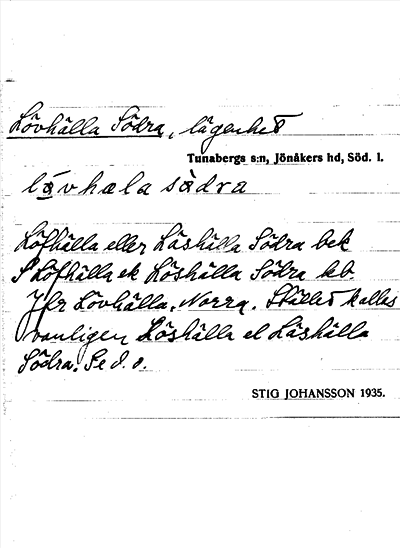 Lövhälla Södra, lägenhet
Tunabergs s:n, Jönåkers hd, Söd. l.
lǻvhæla sὰdra
Löfhälla eller Läshälla Södra bek
S Löfhälla ek Löshälla Södra kb.
Jfr Lövhälla, Norra. Stället kallas
vanligen Löshälla el Läshälla
Södra. Se d. o.
STIG JOHANSSON 1935.